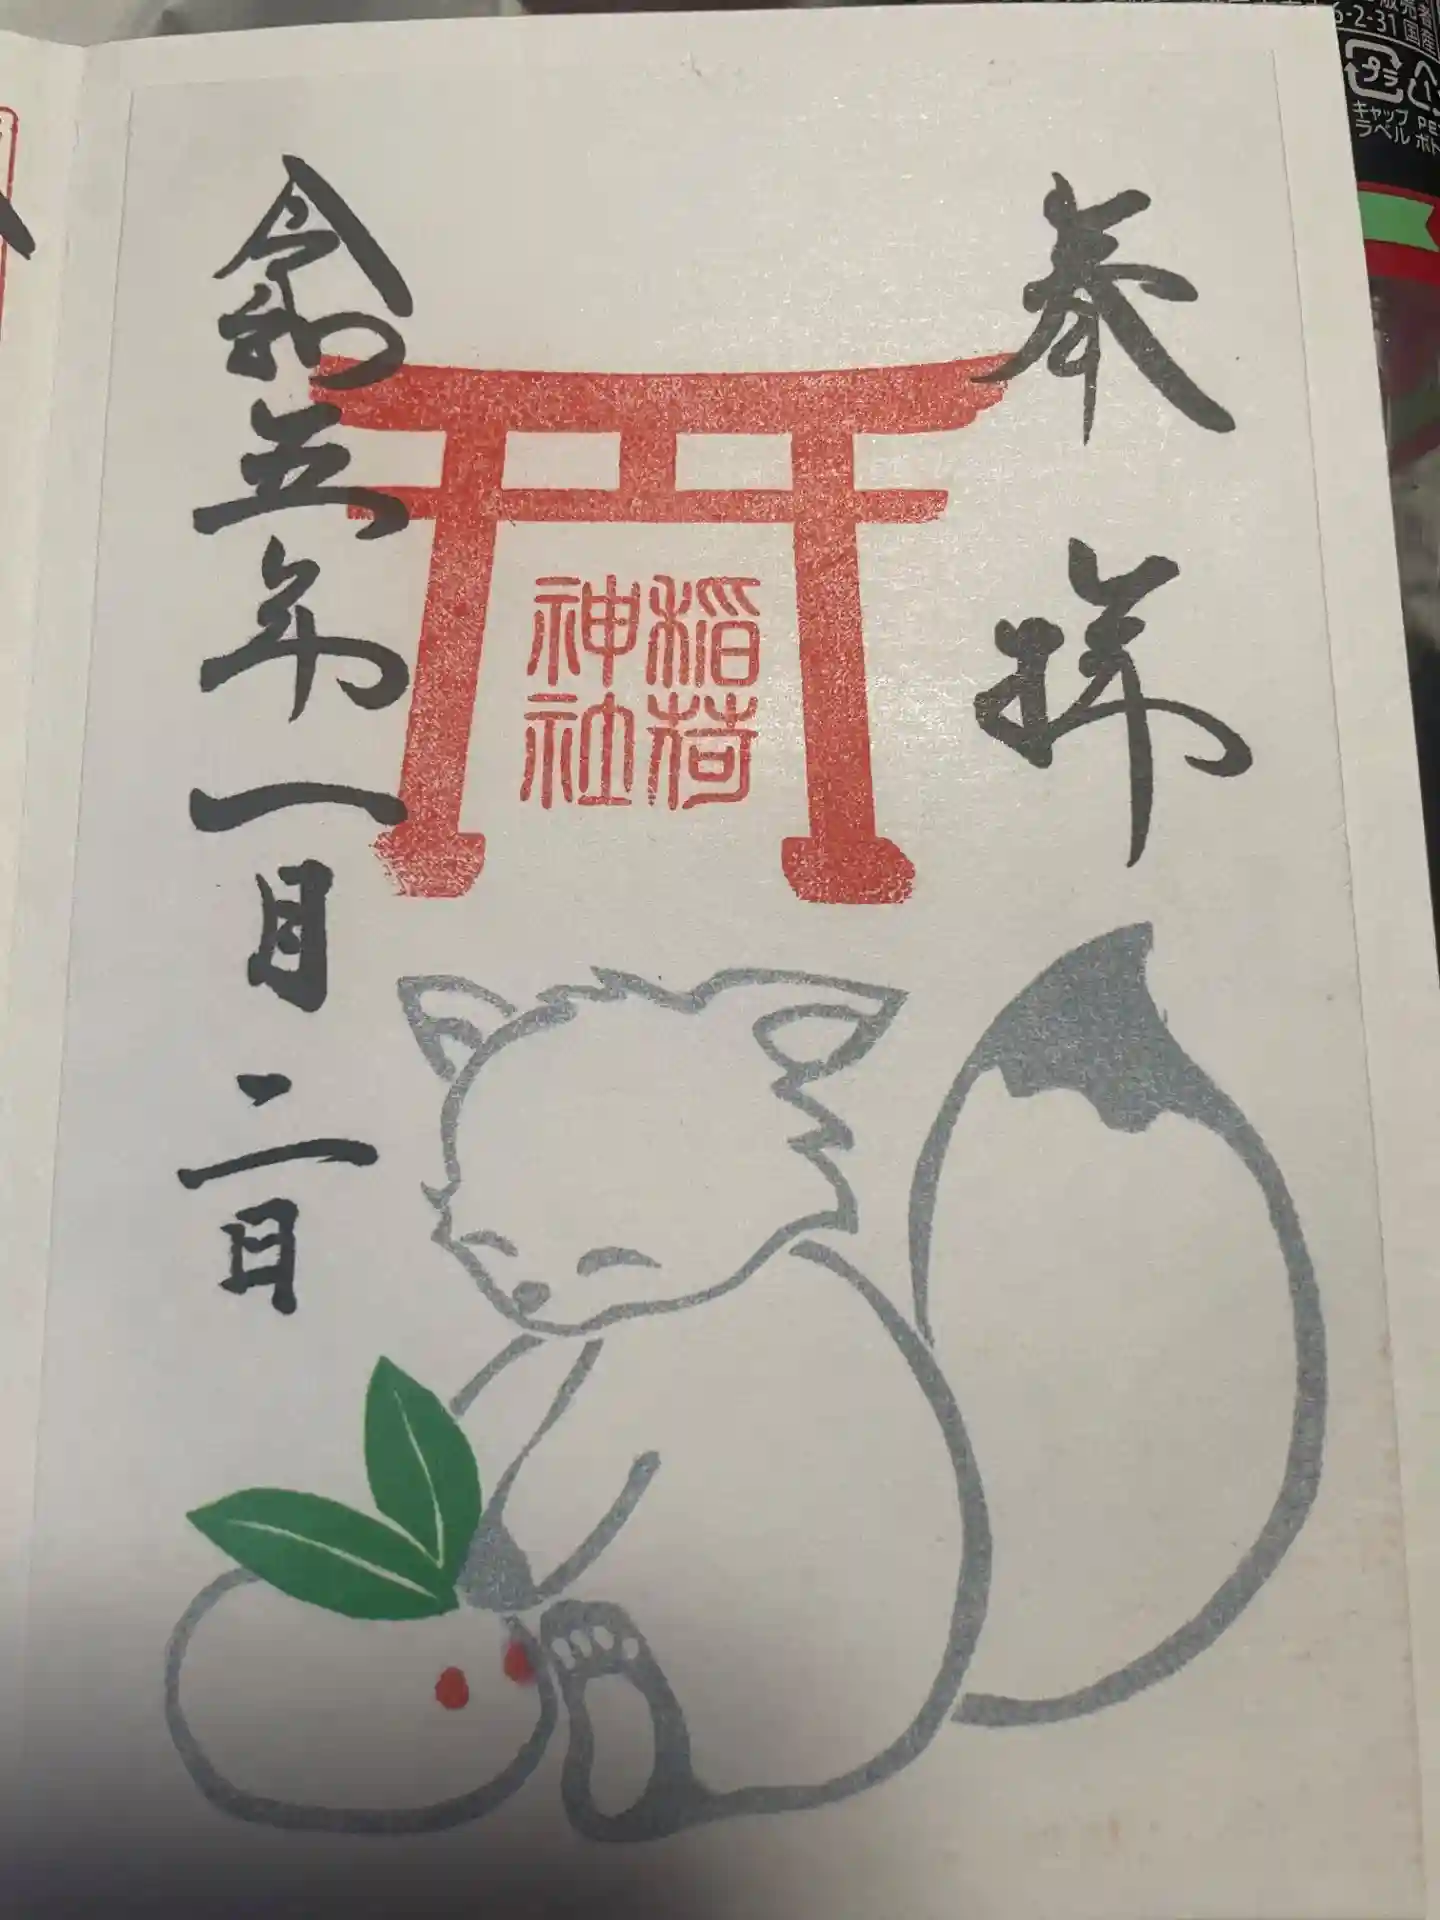 奉拝
稲荷
神社
令和五年一月二日
6-2-31
プラ
キャップ
ラベル